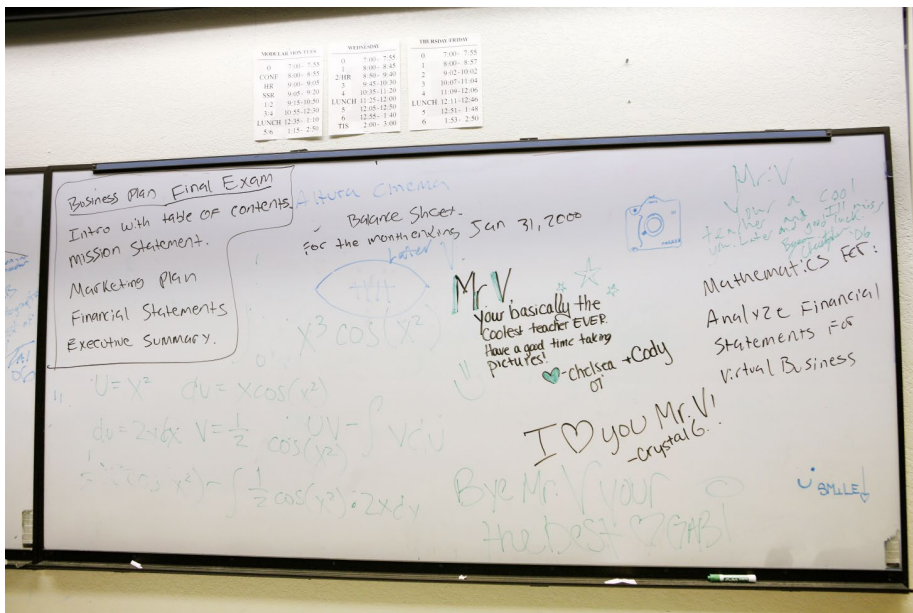 MODULAR MON/TUES
0 7:00- 7:55
CONF 8:00- 8:55
HR 9:00- 9:05
SSR 9:05- 9:20
1/2 9:15-10:50
3/4 10:55-12:30
LUNCH 12:35- 1:10
5/6 1:15- 2:50
WEDNESDAY
0 7:00- 7:55
1 8:00- 8:45
2/HR 8:50- 9:40
3 9:45-10:30
4 10:35-11:20
LUNCH 11:25-12:00
5 12:05-12:50
6 12:55- 1:40
TIS 2:00- 3:00
THURSDAY/FRIDAY
0 7:00- 7:55
1 8:00- 8:57
2 9:02-10:02
3 10:07-11:04
4 11:09-12:06
LUNCH 12:11-12:46
5 12:51- 1:48
6 1:53- 2:50
Business Plan Final Exam
Intro with table of contents.
mission statement.
Marketing Plan
Financial Statements
Executive Summary.
Altura Cinema
Balance Sheet.
For the month ending Jan 31, 2000
x³ cos(x²)
U=x² dv=xcos(x²)
du=2xdx V=1/2 UV-∫Vdu
cos(x²)
-∫1/2 cos(x²)·2xdx
Mr.V
Your basically the
Coolest teacher EVER.
Have a good time taking
pictures!
-Chelsea + Cody
07
I ♡ you Mr.V!
-Crystal G.
Bye Mr.V your
the best ♡ GABI
Mr.V
Your a cool
teacher and I'll miss
you. Later and good luck.
Christopher '06
Mathematics For:
Analyze Financial
Statements For
Virtual Business
SMILE!